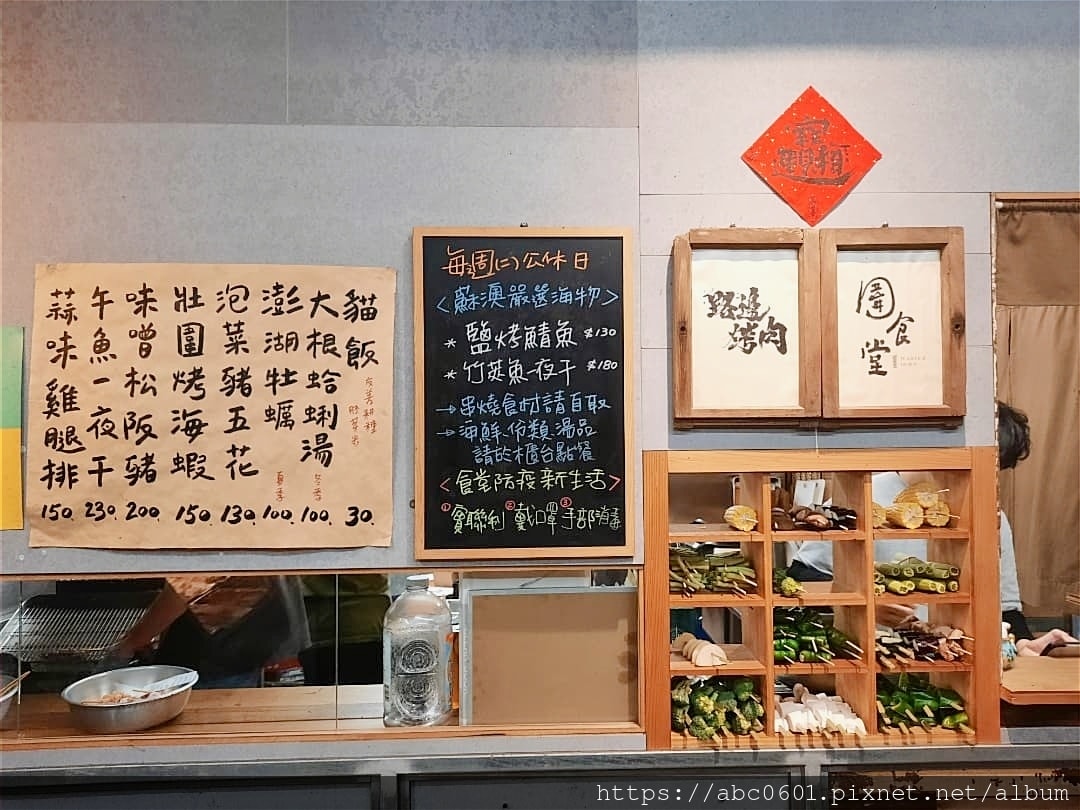 貓飯
友善耕種
胚芽米
30.
大根蛤蜊湯
冬季
100.
澎湖牡蠣
夏季
100.
泡菜豬五花
130.
壯圍烤海蝦
150.
味噌松阪豬
200.
午魚一夜干
230.
蒜味雞腿排
150.
每週(二)公休日
<蘇澳嚴選海物>
* 鹽烤鯖魚 $130
* 竹莢魚一夜干 $180
→串燒食材請自取
→海鮮、份類、湯品
請於櫃台點餐
<食堂防疫新生活>
①實聯制 ②戴口罩 ③手部消毒
招財進寶
野邊
烤肉
圍食堂
https://abc0601.pixnet.net/album